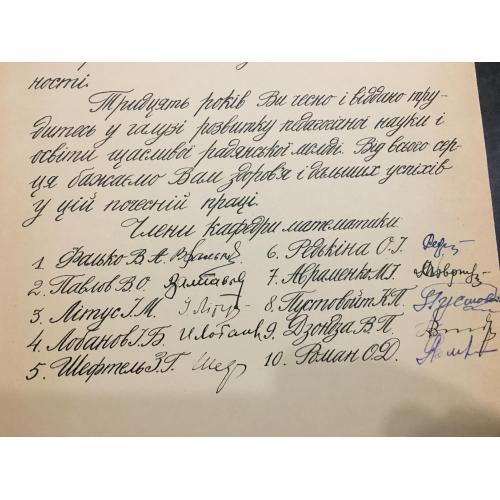 ності.
Тридцять років Ви чесно і віддано тру-
дитесь у галузі розвитку педагогічної науки і
освіти щасливої радянської молоді. Від всього сер-
ця бажаємо Вам здоров'я і дальших успіхів
у цій почесній праці.
Члени кафедри математики
1. Фалько В.А.
2. Павлов В.О.
3. Літус І.М.
4. Лобанов І.Б.
5. Шефтель З.Г.
6. Редькіна О.І.
7. Авраменко М.І.
8. Пустовойт К.П.
9. Дзюндза В.П.
10. Роман О.Д.